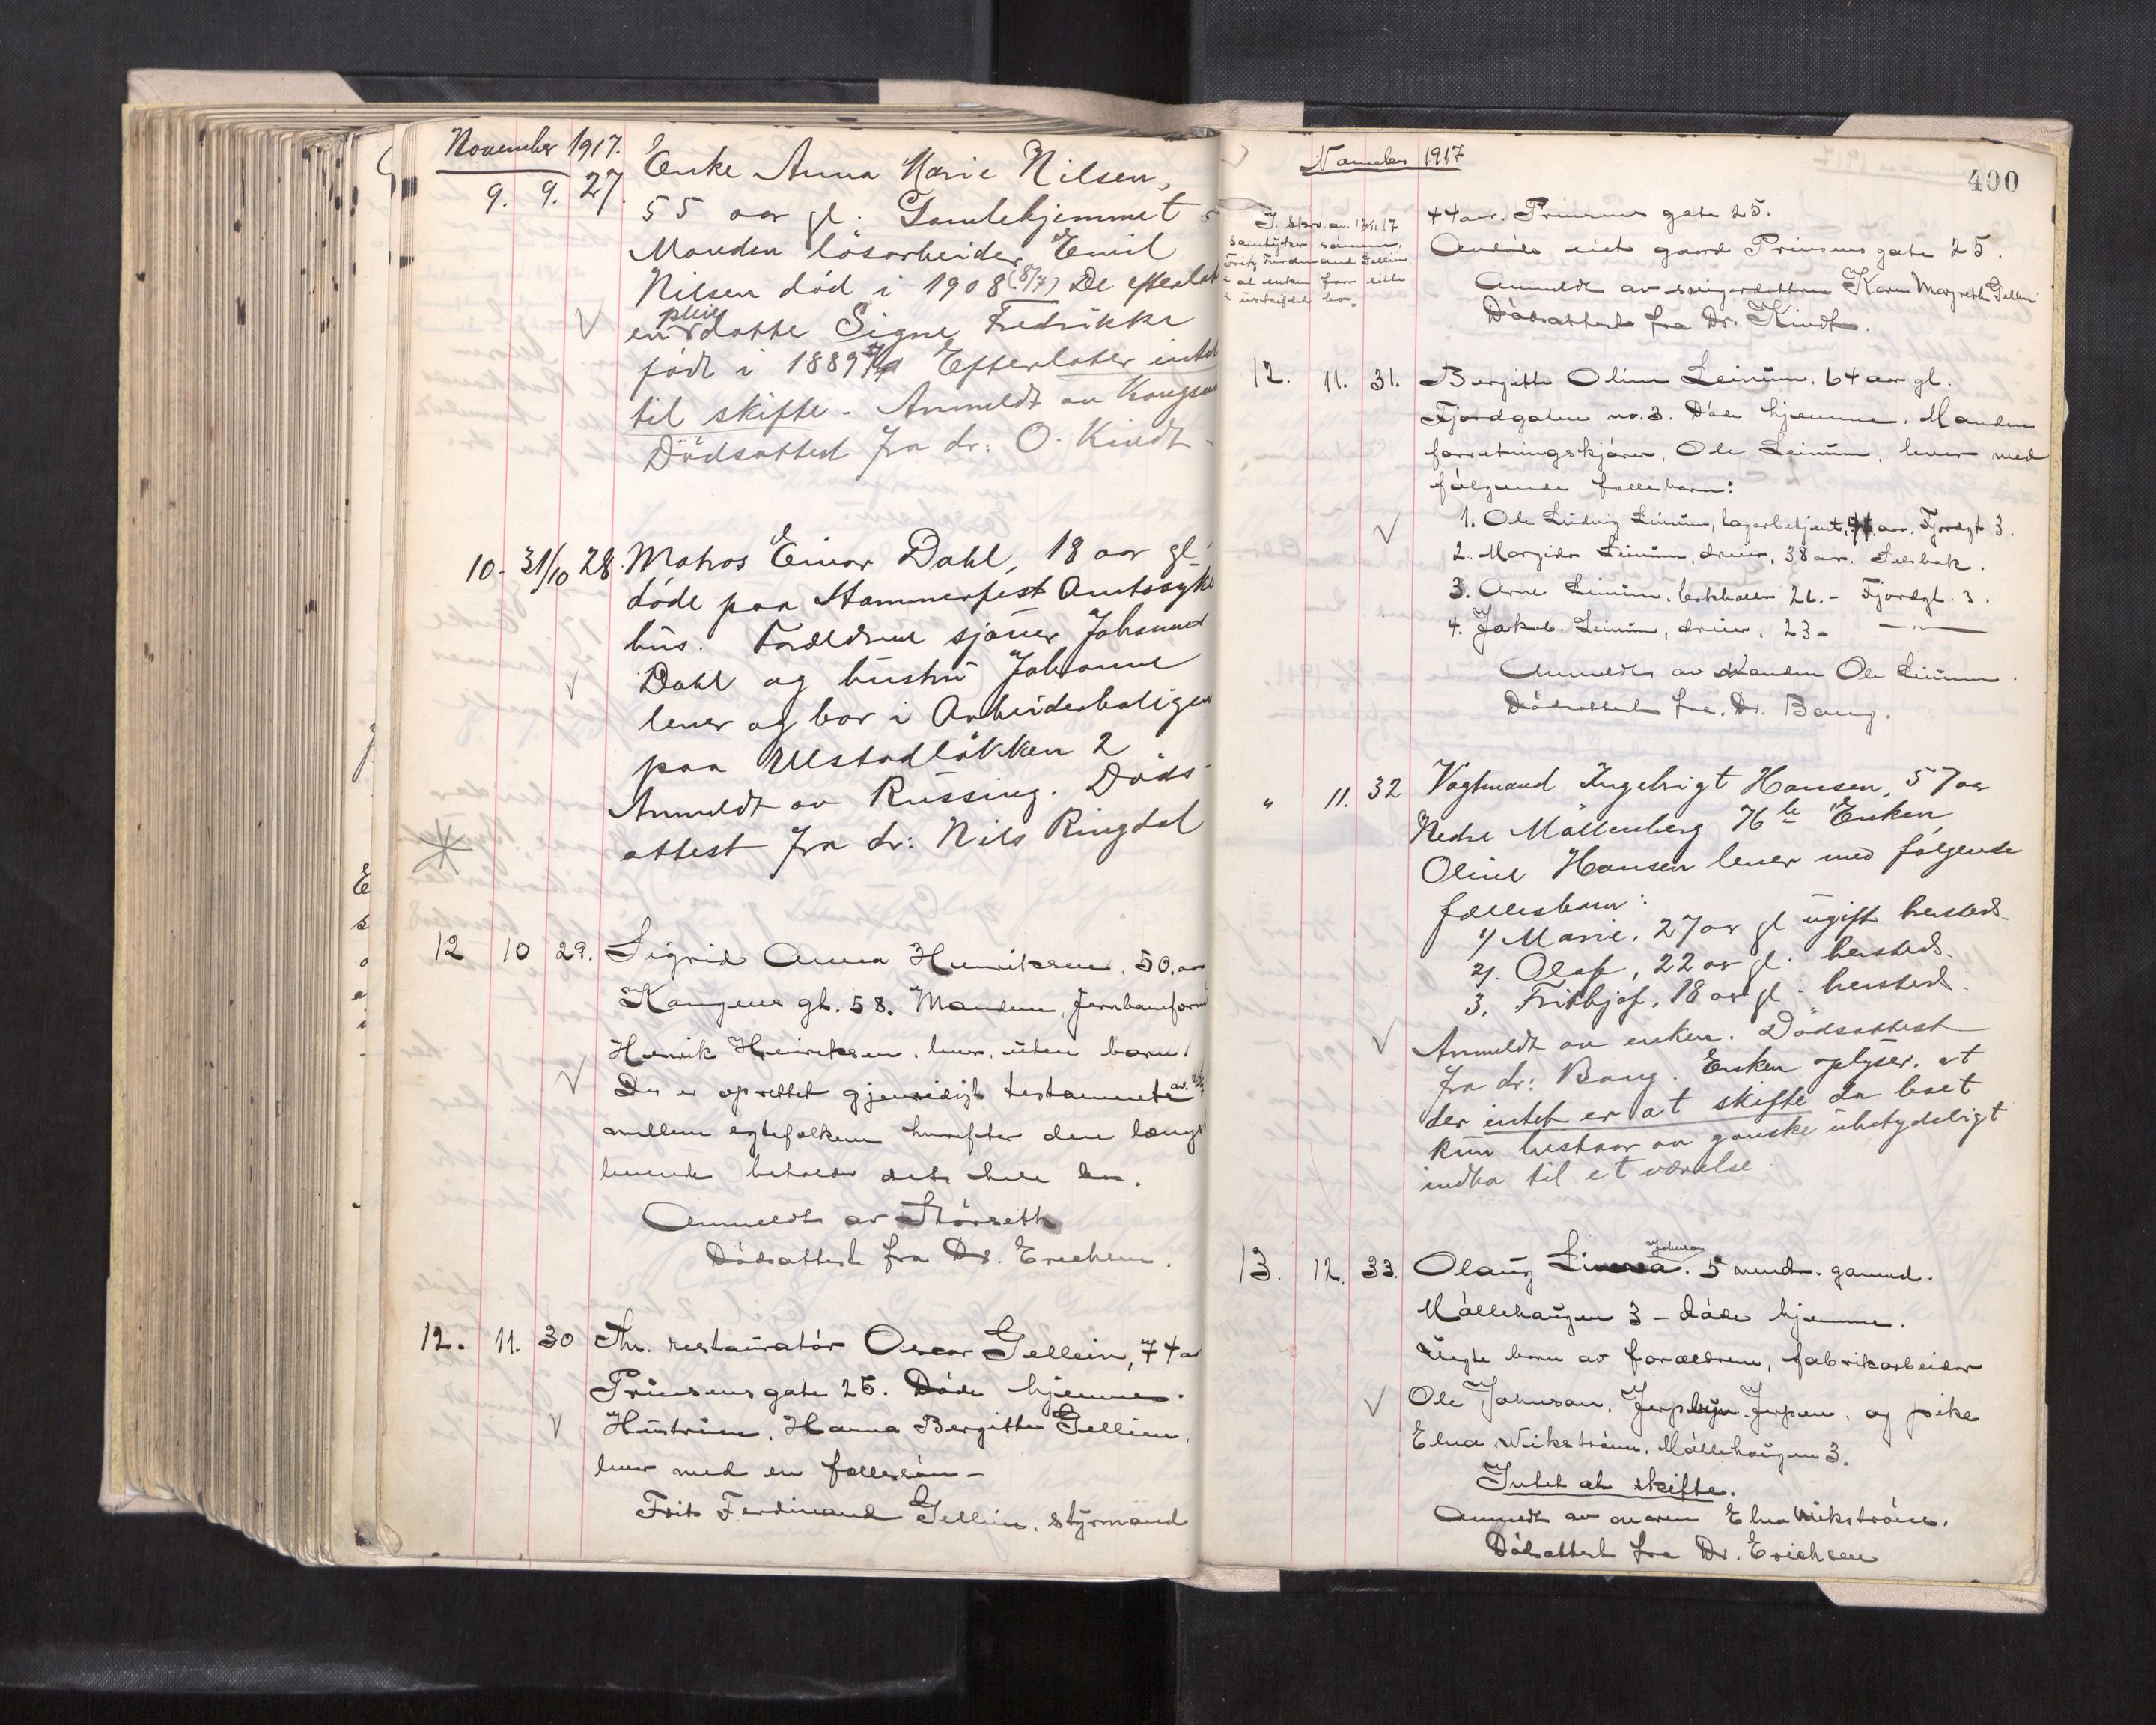 November 1917.
9. 9. 27. Enke Anna Marie Nilsen,
55 aar gl. Gamlehjemmet
Manden løsarbeider Emil
Nilsen død i 1908 (8/7) De efterlot
en pleiedatter Signe Fredrikke
født i 1889 Efterlater intet
til skifte. Anmeldt av
Dödsattest fra dr: O. Kindt
10. 31/10 28. Matros Einar Dahl, 18 aar gl
döde paa Hammerfest Amtssyke
hus. Forældrene sjöuer
Dahl og hustru Johanne
lever og bor i Arbeiderboligen
paa Ulstadlökken 2
Anmeldt av Russing. Döds
attest fra dr: Nils Ringdal
12 10 29. Sigrid Anna Henriksen, 50. aar
Kongens gt. 58. Manden, Jernbaneform
Henrik Henriksen, lever, uten barn.
Der er oprettet gjensidigt testamente av
mellem egtefolkene hvorefter den længst
levende beholder det hele bo.
Anmeldt av Störseth
Dödsattest fra Dr. Erichsen.
12. 11. 30 Fhv. restauratör Oscar Gellein, 74 aar
Prinsens gate 25. Döde hjemme.
Hustruen, Hanna Bergitte Gellein,
lever med en fællessön –
Frits Ferdinand Gellein, styrmand
November 1917
400
I skriv. av. 12/11.17
samtykker sönnen,
Fritz Ferdinand Gellein
i at enken faar sitte
i uskiftet bo.
44 aar. Prinsens gate 25.
Avdöde eiet gaard Prinsens gate 25.
Anmeldt av svigerdatteren Karen Margrethe Gellein
Dödsattest fra Dr. Kindt.
12. 11. 31. Bergitte Oline Leinum, 64 aar gl.
Fjordgaten no. 3. Döde hjemme. Manden
forretningskjörer, Ole Leinum, lever med
fölgende fællesbarn:
1. Ole Ludvig Leinum, lagerbetjent, aar. Fjordgt 3.
2. Leinum, dreier, 38 aar. Selsbak.
3. Arne Leinum, bokholder 26. – Fjordgt. 3.
4. Jakob Leinum, dreier, 23 – — " —
Anmeldt av manden Ole Leinum.
Dödsattest fra Dr. Bang.
" 11. 32 Vagtmand Ingebrigt Hansen, 57 aar
Nedre Möllenberg 76 b Enken
Oline Hansen lever med følgende
fællesbarn:
1) Marie, 27 aar gl ugift hersteds.
2). Olaf, 22 aar gl. hersteds.
3. Frithjof, 18 aar gl. hersteds.
Anmeldt av enken. Dödsattest
fra dr: Bang. Enken oplyser, at
der intet er at skifte da boet
kun bestaar av ganske ubetydeligt
indbo til et værelse
13. 12. 33. Olaug Johnson. 5 mndr. gammel.
Möllehaugen 3 – döde hjemme.
Uegte barn av forældrene, fabrikarbeider
Ole Johnson, Jerpen, og pike
Elna Wikström, Möllehaugen 3.
Intet at skifte.
Anmeldt av moren Elna Wikström.
Dödsattest fra Dr. Erichsen